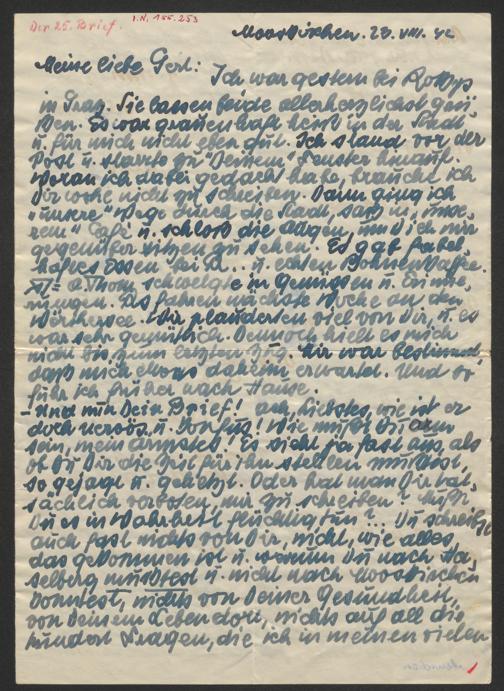 Der 25. Brief.
I.N. 155.253
Mooskirchen. 23. VIII. 42
Meine liebe Gerl: Ich war gestern bei
in Graz. Sie lassen beide allerherzlichst grü-
ßen. Es war grauenhaft heiß in der Stadt
u. für mich nicht eben gut. Ich stand vor der
Post u. starrte zu "Deinem" Fenster hinauf.
Woran ich dabei gedacht habe, brauche ich
Dir wohl nicht zu schreiben. Dann ging ich
"unsere" Wege durch die Stadt, saß in "unse-
rem" Café u. schloß die Augen, um Dich mir
gegenüber sitzen zu sehen. Es gab fabel-
haftes Essen bei R. u. echten Bohnenkaffee.
schwelgte in Genüssen u. Erinne-
rungen. Sie fahren nächste Woche an den
Wörthersee. Wir plauderten viel von Dir, u. es
war sehr gemütlich. Dennoch hielt es mich
nicht bis zum letzten Zug. Mir war bestimmt,
daß mich etwas daheim erwartet. Und so
fuhr ich früher nach Hause.
- Und nun Dein Brief! Ach, Liebstes, wie ist er
doch nervös u. konfus! Wie mußt Du arm
sein, mein Ärmstes! Es sieht ja fast aus, als
ob Du Dir die Zeit für ihn stehlen müßtest,
so gejagt u. gehetzt. Oder hat man Dir tat-
sächlich verboten, mir zu schreiben? Mußt
Du es in Wahrheit flüchtig tun?.. Du schreibst
auch fast nichts von Dir, nicht, wie alles
das gekommen ist u. warum Du nach Ha-
selberg mußtest u. nicht nach Mooskirchen
konntest, nichts von Deiner Gesundheit,
von Deinem Leben dort, nichts auf all die
hundert Fragen, die ich in meinen vielen